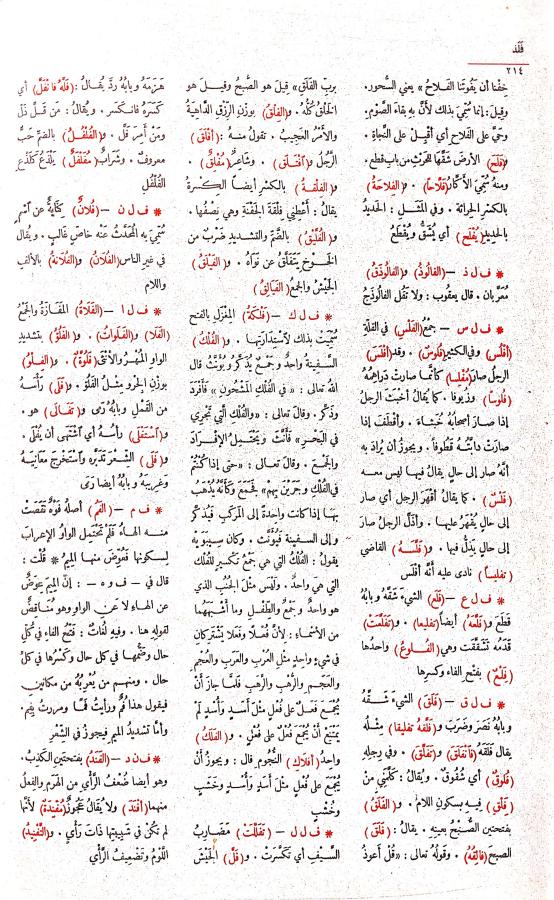 فلذ
٢١٤
خِفْنا أن يَفُوتَنا الفَلاحُ» يعني السُّحور.
وقيلَ: إنما سُمِّيَ بذلك لأنَّ به بَقاءَ الصَّوْمِ.
وحَيَّ على الفَلاحِ أي أقْبِلْ على النَّجاةِ.
و(فَلَحَ) الأرضَ شَقَّها للحَرْثِ من باب قطع.
ومنهُ سُمِّيَ الأكَّارُ (فَلّاحاً) . و(الفِلاحَةُ)
بالكسْرِ الحِراثة . وفي المَثَــل : الحَديدُ
بالحديدِ (يُفْلَح) أي يُشَقُّ ويُقْطَعُ
* ف ل ذ – (الفالُوذُ) و(الفالُوذَقُ)
مُعرَّبان. قال يعقوب: ولا تَقُل الفالُوذَج
* ف ل س – جمْعُ (الفَلْسِ) في القلّةِ
(أفْلُس) وفي الكثيرِ (فُلُوسٌ) . وقد (أفْلَسَ)
الرجلُ صارَ (مُفْلِسا) كأنَّما صارتْ دَراهِمُهُ
(فُلُوسًا) وزُيوفا . كما يُقالُ أخبَثَ الرجلُ
إذا صــارَ أصحابُهُ خُبَثاءَ . وأقْطَفَ إذا
صارَتْ دابَّتُهُ قَطُوفاً . ويجوزُ أن يُرادَ به
أنّهُ صار إلى حالٍ يقالُ فيها ليس معـه
(فَلْسٌ) . كما يقالُ أقْهَرَ الرجل أي صار
إلى حالٍ يُقْهَرُ عليها . وأذَلَّ الرجلُ صارَ
إلى حالٍ يَذِلُّ فيها . و(فَلَّسَهُ) القاضي
(تفليساً) نادى عليه أنّهُ أفْلَسَ
* ف ل ع – (فَلَعَ) الشيءَ شَقّهُ وبابُهُ
قَطَعَ و(فَلَّعَهُ) أيضاً (تفليعا) . و(تَفَلَّعَتْ)
قَدَمُهُ تَشَقَّقَتْ وهي (الفُــلوعُ) واحدُها
(فَلْعٌ) بفتح الفاء وكسرها
* ف ل ق – (فَلَقَ) الشيءَ شَــقَّهُ
وبابُهُ نَصَرَ وضَرَبَ و(فَلَّقَهُ تفليقا) مثــلُه
يقال فَلَقَهُ (فانْفَلَقَ) و(تَفَلَّقَ) . وفي رِجلِه
(فُلُوقٌ) أي شُقُوقٌ . ويُقالُ: كَلَّمَني مِنْ
(فِلْقِ) فِيـهِ بسكونِ اللامِ . و(الفَلَقُ)
بفتحتين الصُّـبْحُ بعينِهِ . يقالُ: (فَلَقَ)
الصبحَ (فالِقُهُ) . وقولُهُ تعالى: «قُلْ أعوذُ
بربِّ الفَلَقِ» قِيلَ هو الصُّبْحُ وقيـلَ هو
الخَلْقُ كُلُّه . و(الفِلْقُ) بوَزْنِ الرِّزْقِ الدَّاهِيَةُ
والأَمْرُ العَجِيبُ . تقولُ منـهُ : (أفْلَقَ)
الرَّجُلُ و(افْتَـلَقَ) . وشاعِرٌ (مُفْلِقٌ) .
و(الفِلْقَةُ) بالكسْرِ أيضًا الكِسْرةُ
يقال: أعْطِني فِلْقَةَ الجَفْنَةِ وهي نِصفُها .
و(الفُلَّيْقُ) بالضّمِّ والتشديدِ ضَرْبٌ من
الخَــوْخِ يَتَفَلَّقُ عن نَوَاهُ . و(الفَيْلَقُ)
الجَيْشُ والجمعُ (الفَيالِقُ)
* ف ل ك – (فَلْكَةُ) المِغْزَلِ بالفتح
سُمِّيَتْ بذلك لاستِدارَتِهـا . و(الفُلْكُ)
السَّفينةُ واحدٌ وجَمْعٌ يُذَكَّر ويُؤَنَّثُ قال
اللهُ تعالى: « في الفُلْكِ المَشْحُونِ » فأفْرَدَ
وذَكَّر. وقال تعالى: «والفُلْكِ الَّتي تَجْرِي
في البَحْــرِ» فأنَّثَ ويَحْتَمِلُ الإفْــرادَ
والجَمْعَ . وقال تعـالى : «حتّى إذا كُنْتُمْ
في الفُلْكِ وجَرَيْنَ بِهِمْ» فجَمَعَ وكأنّهُ يُذْهَبُ
بهـا إذا كانت واحدةً إلى المَرْكَبِ فيُذَكَّر
وإلى السفينة فيُؤَنَّث . وكان سِيبَوَيْهِ
يقولُ: الفُلْكُ التي هي جَمْعُ تكْسيرٍ للفُلْكِ
التي هي واحدٌ . وليس مثلَ الجُنُبِ الذي
هو واحدٌ وجَمْعٌ والطِّفْلِ وما أشْبَهَهُما
من الأسماء : لأنّ فُعْلاً وفَعَلا يَشْتَرِكان
في شيءٍ واحدٍ مثلُ العُرْبِ والعَرَبِ والعُجْمِ
والعَجَمِ والرُّهْبِ والرَّهَبِ فلمَّا جازَ أنْ
يُجْمَعَ فَعَـلٌ على فُعْلٍ مثلُ أَسَدٍ وأُسْدٍ لَمْ
يَمْتَنِعْ أنْ يُجْمَعَ فُعْلٌ على فُعْلٍ . و(الفَلَكُ)
واحدُ (أفلاك) النُّجُومِ قال: ويجوزُ أنْ
يُجْمَعَ على فُعْلٍ مثلُ أَسَدٍ وأُسْدٍ وخَشَبٍ
وخُشْبٍ
* ف ل ل – (تَفَلَّلَتْ) مَضــاربُ
السَّـيْفِ أي تَكَسَّرتْ . و(فَلَّ) الجَيْشَ
هَزَمَهُ وبابُهُ رَدَّ يقالُ: (فَلَّهُ فانْفَلَّ) أي
كَسَرَهُ فانكسر . ويُقالُ: مَن قَلَّ ذَلَّ
ومَنْ أَمِرَ فَلَّ . و(الفُلْفُلُ) بالضمِّ حَبٌّ
معروفٌ . وشَرَابٌ (مُفَلْفَلٌ) يَلْذَعُ كَلَذْعِ
الفُلْفُلِ
* ف ل ن – (فُلانٌ) كِنَايةٌ عن اسْمٍ
سُمِّيَ به المُحَدَّثُ عنه خاصٍّ غالبٍ . ويقال
في غير الناس (الفُلانُ) و(الفُلانَةُ) بالألفِ
واللام
* ف ل ا – (الفَلاةُ) المَفَازَةُ والجَمْعُ
(الفَلا) و(الفَلَواتُ) . و(الفَلُوُّ) بتشديدِ
الواوِ المُهْرُ والأُنثى (فَلُوَّةٌ) . و(الفِـلْوُ)
بوزن الجِرْوِ مِثْلُ الفَلُوِّ . و(فَلَى) رَأْسَهُ
من القَمْلِ وبابُهُ رَمَى و(تفــالَى) هو .
و(اسْتَفْلَى) رأسُه أي اشْتَهَى أن يُفْلَى .
و(فَلَى) الشِّـعْرَ تَدَبَّرَه واسْتَخْرَجَ مَعانِيَهُ
وغَرِيبَهُ وبابُهُ أيضا رَمَى
* ف م – (الفَمُ) أصلُهُ فَوْهٌ نَقَصَتْ
منــه الهاءُ فلم تَحْتَمِلِ الواوُ الإعراب
لسكونها فَعُوِّضَ منهـا الميمُ * قُلْتُ :
قال في – ف و ه – : إنّ الميمَ عِوَضٌ
عن الهاءِ لا عنِ الواوِ وهو مُناقِضٌ
لقوله هنا . وفيه لُغاتٌ : فَتْحُ الفاءِ في كُلِّ
حالٍ وضَمُّهـا في كل حالٍ وكَسْرُها في كلِّ
حال . ومنهم من يُعْرِبُهُ من مكانَيْنِ
فيقول هذا فُمٌ ورأيتُ فَمًا ومررتُ بِفِمٍ.
وأمّا تشديدُ الميمِ فيجوزُ في الشِّعْرِ
* ف ن د – (الفَنَدُ) بفتحتين الكَذِبُ.
وهو أيضا ضَعْفُ الرَّأْيِ من الهَرَمِ والفِعْلُ
منهما (أفْنَدَ) ولا يُقالُ عَجُوزٌ (مُفْنِدَةٌ) لأنّها
لم تَكُنْ في شَبِيبَتِها ذاتَ رَأْيٍ . و(التَّفْنِيدُ)
اللَّوْمُ وتَضْعِيفُ الرَّأْيِ